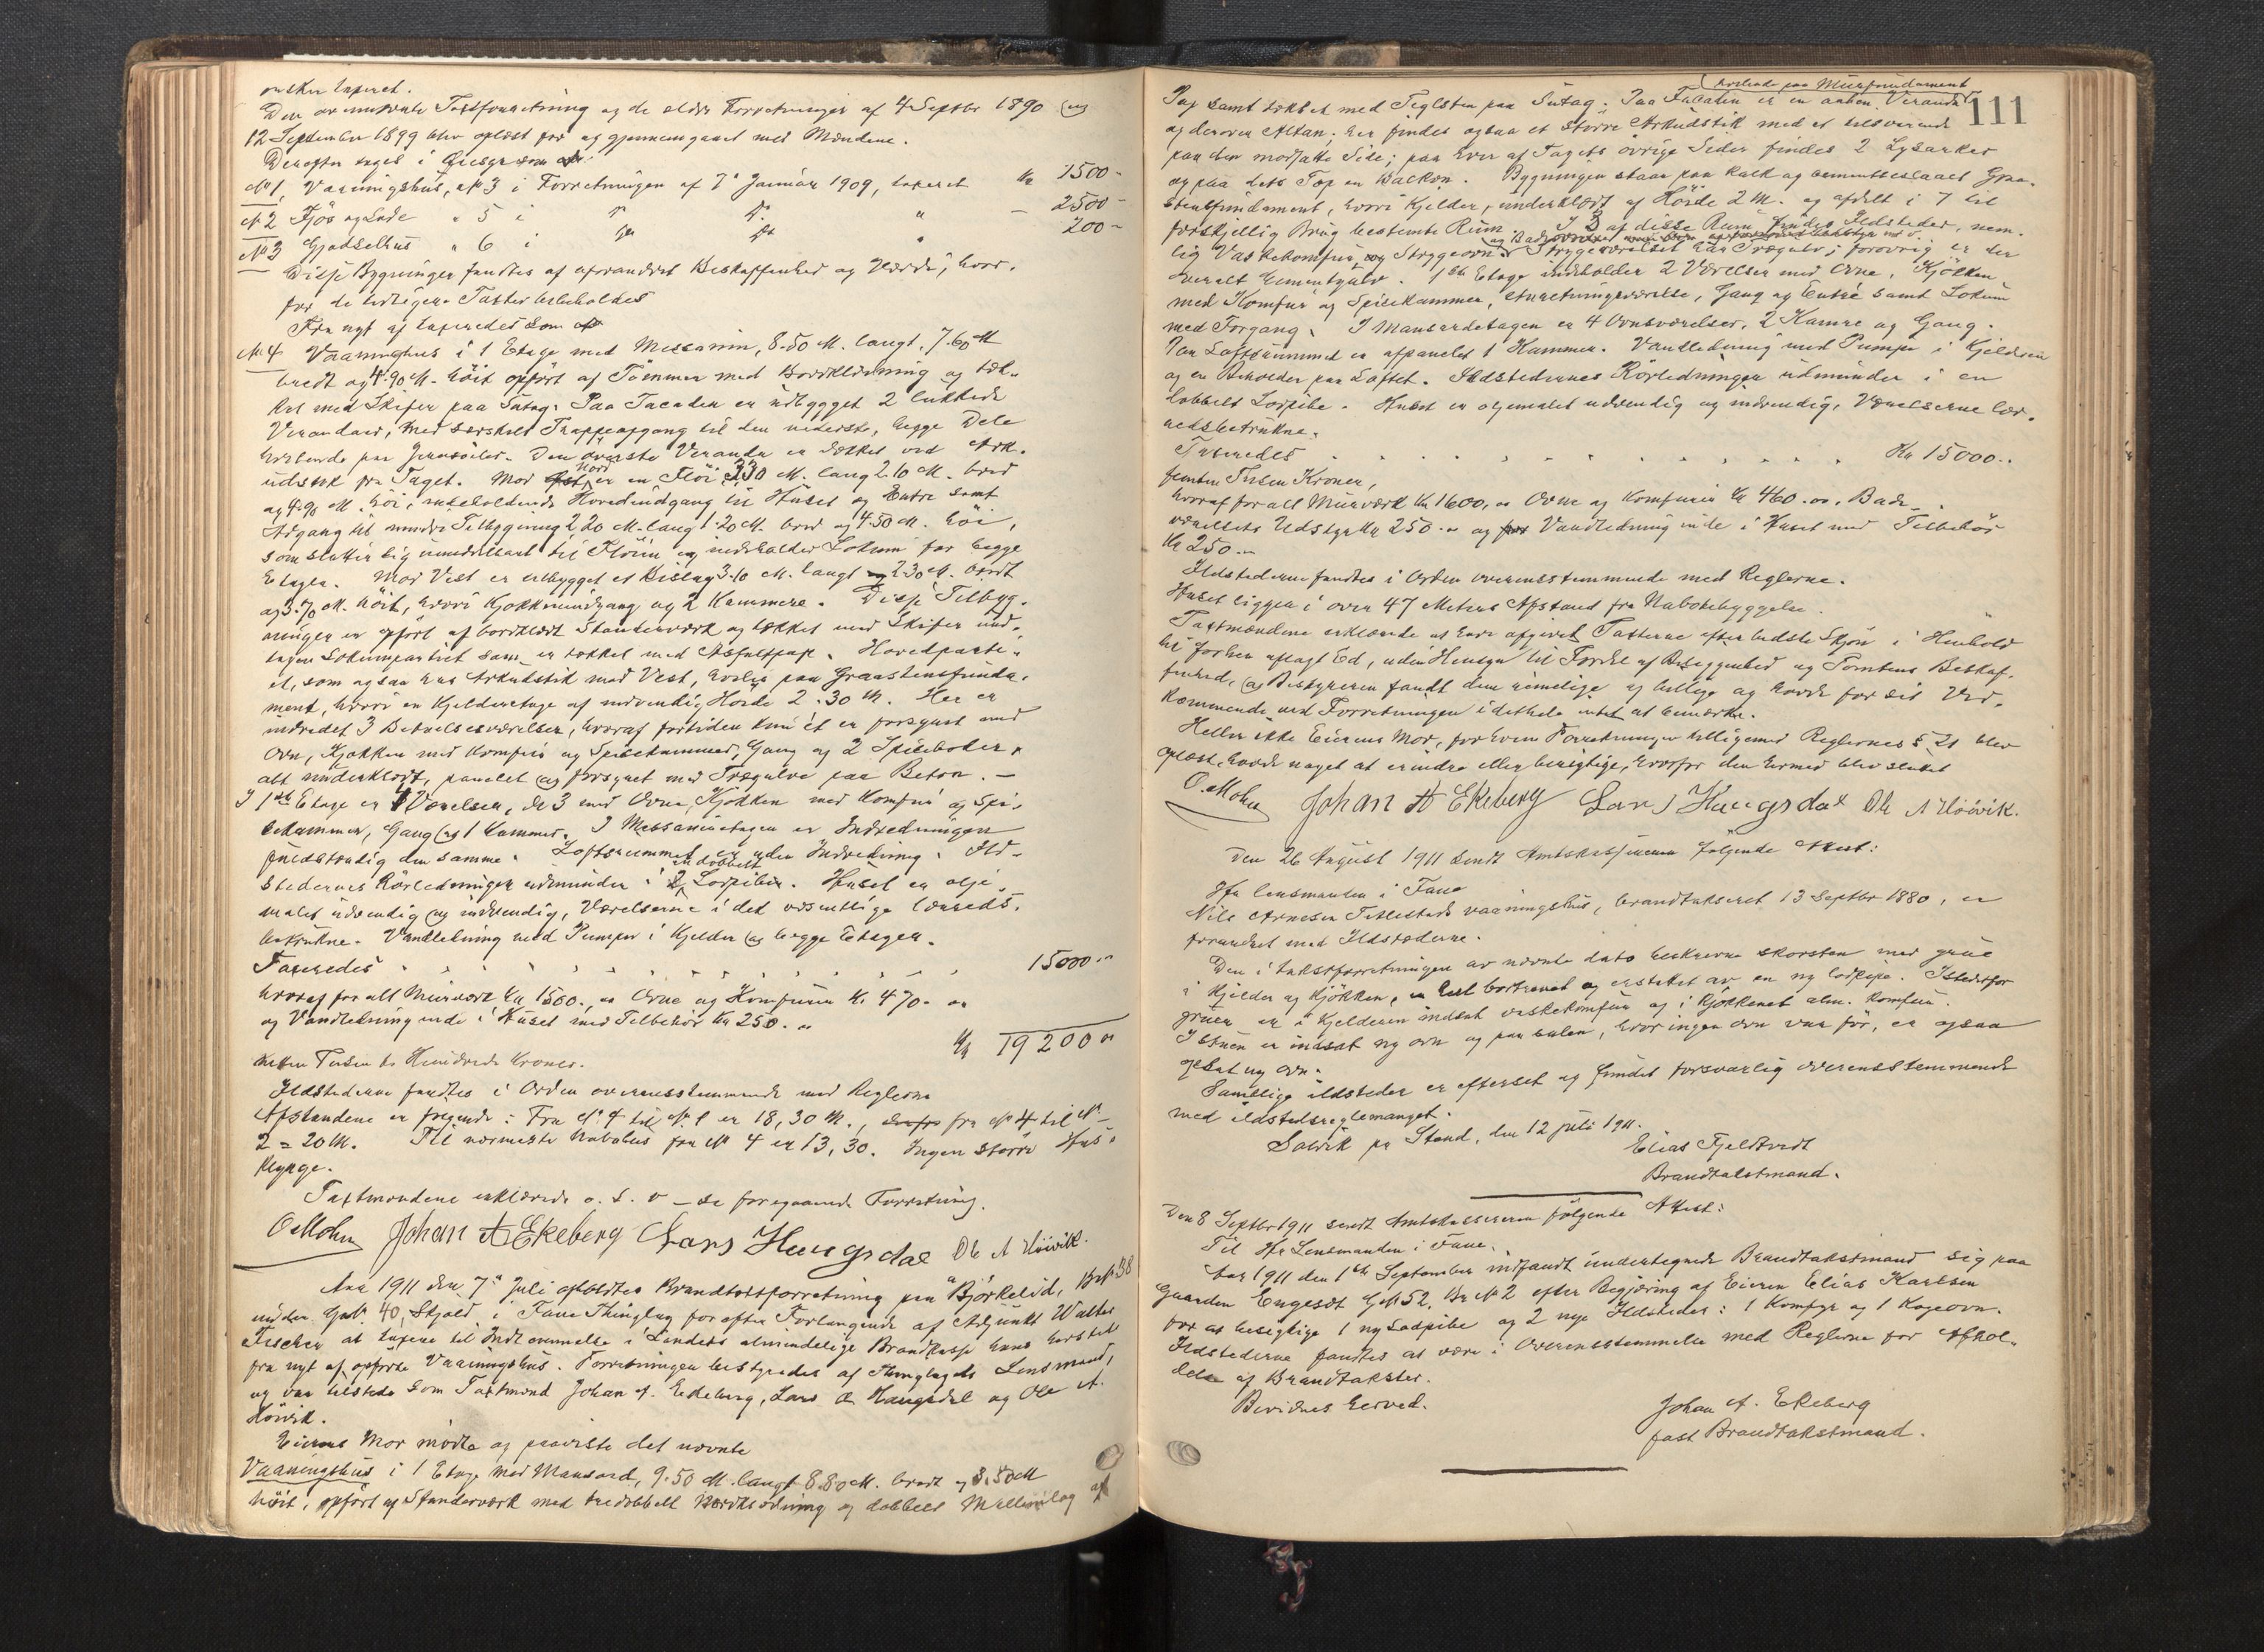 ønskes taxeret.
Den ovennævnte Taxtforretning og de ældre Forretninger af 4 Septbr 1890 og
12 September 1899 blev oplæst for og gjennemgaaet med Mændene.
Derefter toges i Øiesyn som
No 1, Vaaningshus, No 3 i Forretningen af 7de Januar 1909, taxeret Kr 1500-
No 2 Fjøs og Lade " 5 i do do " - 2500-
No 3 Gjødselhus " 6 i do do " 200-
Disse Bygninger fandtes af uforandret Beskaffenhed og Værdi, hvor-
for de tidligere Taxter beholdes
Fra nyt af taxeredes som
No 4 Vaaningshus i 1 Etage med Messanin, 8.50 M. langt, 7.60 M
bredt og 4.90 M. høit opført af Tømmer med Bordklædning og tæk-
ket med Skifer paa Sutag. Paa Facaden er udbygget 2 lukkede
Verandaer, med særskilt Trappeopgang til den nederste, begge Dele
hvilende paa Jernsøiler. Den øverste Veranda er dækket ved Ark-
udstik fra Taget. Mod Nord er en Fløi 3.30 M. lang 2.10 M. bred
og 4.90 M. høi, indeholdende Hovedindgang til Huset og Entre samt
Adgang til mindre Tilbygning 2.20 M. lang 1.20 M. bred og 4.50 M. høi,
som slutter sig umiddelbart til Fløien og indeholder Lokum for begge
Etager. Mod Vest er udbygget et Bislag 3.10 M. langt 2.30 M. bredt
og 3.70 M. høit, hvori Kjøkkenindgang og 2 Kammere. Disse Tilbyg-
ninger er opført af bordklædt Standerværk og tækket med Skifer und-
tagen Lokumpartiet som er tækket med Asfaltpap. Hovedparti-
et, som ogsaa har Arkudstik mod Vest, hviler paa Graastensfunda-
ment, hvori en Kjelderetage af indvendig Høide 2.30 M. Her er
indredet 3 Beboelsesværelser, hvoraf fortiden kun et er forsynt med
Ovn, Kjøkken med Komfur og Spisekammer, Gang og 2 Spiseboder,
alt underklædt, panelet og forsynet med Trægulve paa Beton. -
I 1ste Etage er Værelser, de 3 med Ovne, Kjøkken med Komfur og Spi-
sekammer, Gang og 1 Kammer. I Messaninetagen er Indredningen
fuldstændig den samme. Loftsrummet er uden Indredning. Ild-
stedernes Rørledninger udmunder i en dobbelt Lodpibe. Huset er olje-
malet udvendig og indvendig, Værelserne i det væsentlige lærreds-
betrukne. Vandledning med Pumper i Kjelder og begge Etager.
Taxeredes 15000.-
hvoraf for alt Murværk Kr 1500.- Ovne og Komfurer Kr 470.-
og Vandledning inde i Huset med Tilbehør Kr 250.-
Kr 19200.-
nitten Tusen to Hundrede Kroner.
Ildstederne fandtes i Orden overensstemmende med Reglerne
Afstandene er følgende: Fra No 4 til No 1 er 18,30 M., fra No 4 til No
2 = 20 M. Til nærmeste Nabohus fra No 4 er 13,30. Ingen større Hus-
klynge.
Taxtmændene erklærede o. s. v - se foregaaende Forretning.
O. Mohn Johan A Ekeberg Lars Haugsdal Ole A Høivik.
Aar 1911 den 7de Juli afholdtes Brandtaxtforretning paa "Bjørkelid", Br No 38
under G No 40, Skjold i Fane Thinglag for efter Forlangende af Adjunkt Walter
Fischer at taxere til Indlemmelse i Landets almindelige Brandkasse hans
fra nyt af opførte Vaaningshus. Forretningen bestyredes af Thinglagets Lensmand,
og var tilstede som Taxtmænd Johan A. Ekeberg, Lars Haugsdal og Ole A.
Høivik.
Eierens Mor mødte og paaviste det nævnte
Vaaningshus i 1 Etage med Mansard, 9.50 M. langt 8.80 M. bredt og 3.50 M
høit, opført af Standerværk med tredobbelt Bordklædning og dobbelt Mellemlag af
111
hvilende paa Murfundament
Pap samt tækket med Teglsten paa Sutag. Paa Facaden er en aaben Veranda
og derover Altan; her findes ogsaa et større Arkudstik med et tilsvarende
paa den modsatte Side; paa hver af Tagets øvrige Sider findes 2 Lysarker
og paa dets Top en Balkon. Bygningen staar paa kalk og cementteslaaet Graa-
stensfundament, hvori Kjelder, underklædt af Høide 2 M. og afdelt i 7 til
forskjellig Brug bestemte Rum. I 3 af disse Rum findes Ildsteder, nem-
lig Vaskekomfur, og Strygeovn og Badeovn. Strygeværelset har Trægulv; forøvrig er der
overalt Cementgulv. 1ste Etage indeholder 2 Værelser med Ovne, Kjøkken
med Komfur og Spisekammer, Anretningsværelse, Gang og Entré samt Lokum
med Forgang. I Mansardetagen er 4 Ovnsværelser, 2 Kamre og Gang.
Paa Loftsrummet er afpanelet 1 Kammer. Vandledning med Pumpe i Kjelderen
og en Beholder paa Loftet. Ildstedernes Rørledninger udmunder i en
dobbelt Lodpibe. Huset er oljemalet udvendig og indvendig, Værelserne lær-
redsbetrukne.
Taxeredes Kr 15000..
femten Tusen Kroner,
hvoraf for alt Murværk Kr 1600,- Ovne og Komfurer Kr 460.oo, Bade-
værelsets Udstyr Kr 250.- og Vandledning inde i Huset med Tilbehør
Kr 250.-
Ildstederne fandtes i Orden overensstemmende med Reglerne.
Huset ligger i over 47 Meters Afstand fra Nabobebyggelse.
Taxtmændene erklærede at have afgivet Taxterne efter bedste Skjøn i Henhold
til forhen aflagt Ed, uden Hensyn til Fordel af Beliggenhed og Tomtens Beskaf-
fenhed, og Bestyreren fandt dem rimelige og billige og havde for sit Ved-
kommende ved Forretningen i det hele intet at bemærke.
Heller ikke Eierens Mor, for hvem Forretningen tilligemed Reglernes § 21 blev
oplæst, havde noget at erindre eller berigtige, hvorfor den hermed blev sluttet
O. Mohn Johan A Ekeberg Lars Haugsdal Ole A Høivik.
Den 26 August 1911 sendt Amtskassereren følgende Attest:
Hr lensmanden i Fane
Nils Arnesen Titlestads vaaningshus, brandtakseret 13 Septbr 1880, er
forandret med Ildstederne.
Den i takstforretningen av nævnte dato beskrevne skorsten med grue
i kjelder og kjøkken, er helt bortrevet og erstatet av en ny lodpipe. Istedetfor
gruer er i kjelderen indsat vaskekomfur og i kjøkkenet alm. komfur.
I stuen er indsat ny ovn og paa salen, hvor ingen ovn var før, er ogsaa
opsat ny ovn.
Samtlige ildsteder er efterset og fundet forsvarlig overensstemmende
med ildstedsreglemanget.
Salvik pr Stend, den 12 juli 1911.
Elias Fjeldtvedt
Brandtakstmand.
Den 8 Septbr 1911 sendt Amtskassereren følgende Attest:
Til Hr Lensmanden i Fane.
Aar 1911 den 1ste September indfandt undertegnede Brandtakstmand sig paa
Gaarden Engesæt G No 52, Br No 2 efter Begjæring af Eieren Elias Karlsen
for at besigtige 1 ny Lodpibe og 2 nye Ildsteder: 1 Komfyr og 1 Kogeovn.
Ildstederne fandtes at være i Overensstemmelse med Reglerne for Afhol-
delse af Brandtakster.
Bevidnes herved.
Johan A. Ekeberg
fast Brandtakstmand.